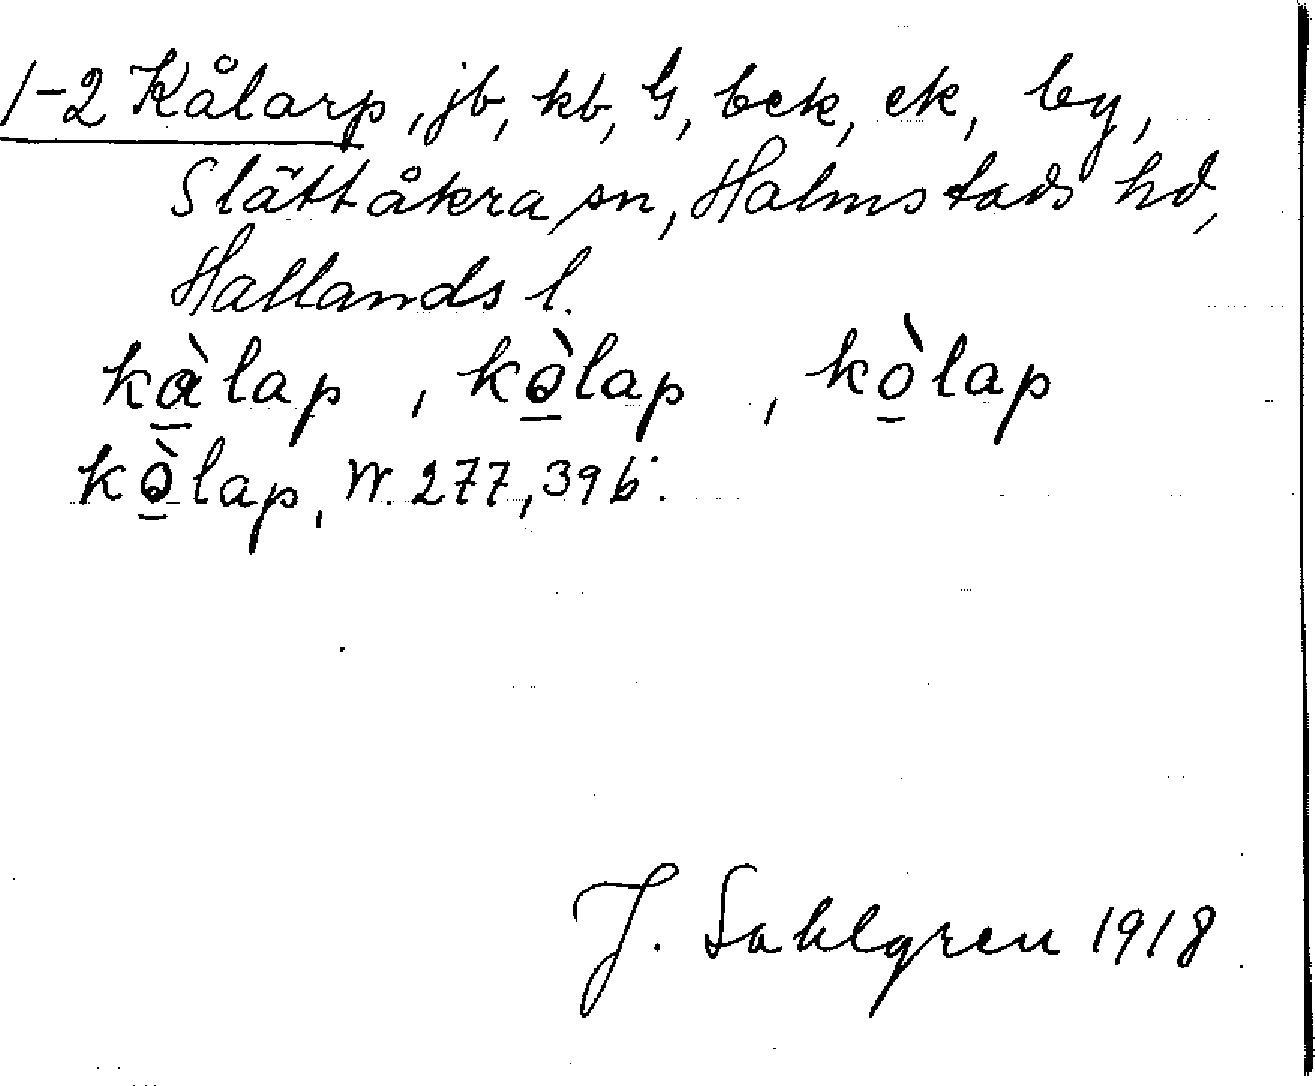 1-2 Kålarp, jb, kb, G, bek, ek, by,
Slättåkra sn, Halmstads hd,
Hallands l.
kàlap, kə̀lap, kòlap
kə̀lap, W. 277, 39 b.
J. Sahlgren 1918